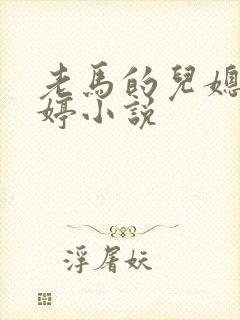 老馬的兒媳
婷小説
浮屠妖